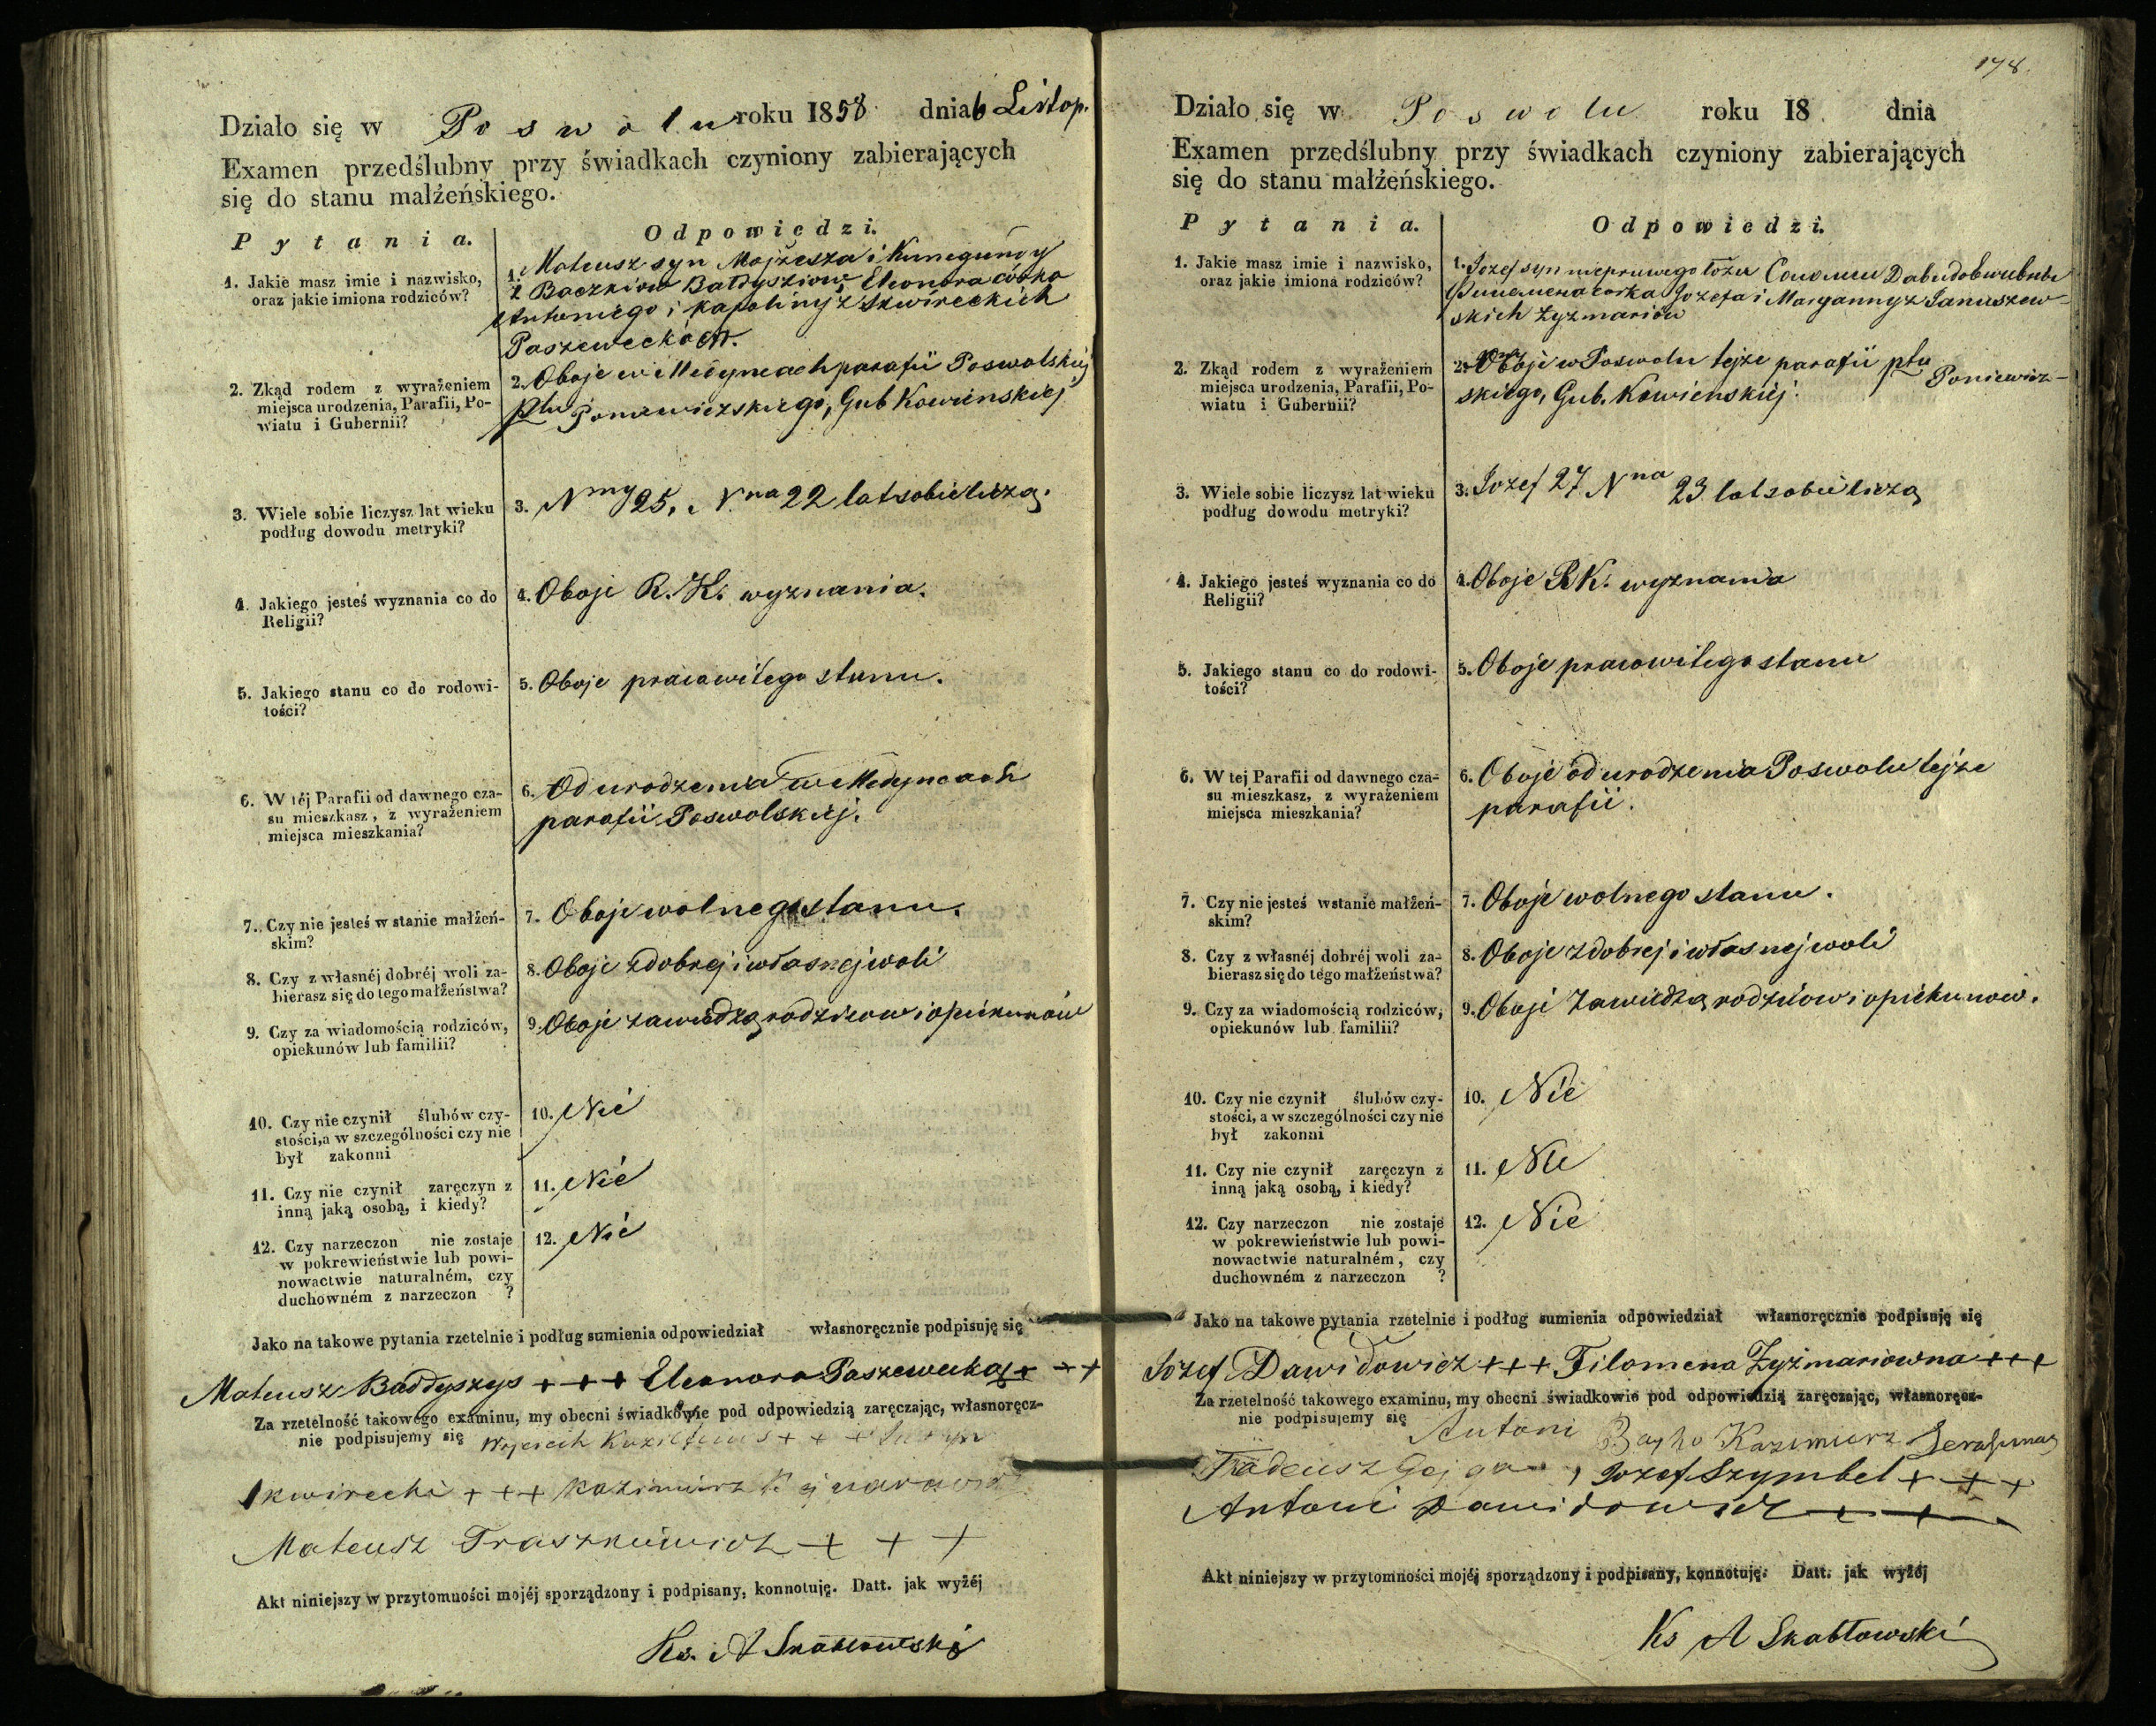 Działo się w Poswolu roku 1858 dnia 6 Listop.
Examen przedślubny przy świadkach czyniony zabierających
się do stanu małżeńskiego.
Pytania.
Odpowiedzi.
1. Jakie masz imie i nazwisko,
oraz jakie imiona rodziców?
1. Mateusz syn Mojżesza i Kunegundy
z Baczkiow Bałdysziow, Eleonora córka
Antoniego i Karoliny z Skwireckich
Paszeweckich.
2. Zkąd rodem z wyrażeniem
miejsca urodzenia, Parafii, Po-
wiatu i Gubernii?
2. Oboje w Medyncach parafii Poswolskiej
ptu Poniewiezskiego, Gub Kowienskiej
3. Wiele sobie liczysz lat wieku
podług dowodu metryki?
3. Nny 25, Nna 22 lat sobie liczą.
4. Jakiego jesteś wyznania co do
Religii?
4. Oboje R. K. wyznania.
5. Jakiego stanu co do rodowi-
tości?
5. Oboje pracowitego stanu.
6. W téj Parafii od dawnego cza-
su mieszkasz, z wyrażeniem
miejsca mieszkania?
6. Od urodzenia w Medyncach
parafii Poswolskiej.
7. Czy nie jesteś w stanie małżeń-
skim?
7. Oboje wolnego stanu.
8. Czy z własnéj dobréj woli za-
bierasz się do tego małżeństwa?
8. Oboje z dobrej i własnej woli
9. Czy za wiadomością rodziców,
opiekunów lub familii?
9. Oboje za wiedzą rodzicow i opiekunów
10. Czy nie czynił ślubów czy-
stości, a w szczególności czy nie
był zakonni
10. Nié
11. Czy nie czynił zaręczyn z
inną jaką osobą, i kiedy?
11. Nié
12. Czy narzeczon nie zostaje
w pokrewieństwie lub powi-
nowactwie naturalném, czy
duchowném z narzeczon ?
12. Nié
Jako na takowe pytania rzetelnie i podług sumienia odpowiedział własnoręcznie podpisuję się
Mateusz Bałdyszys + + + Eleonora Paszewecka + + +
Za rzetelność takowego examinu, my obecni świadkowie pod odpowiedzią zaręczając, własnoręcz-
nie podpisujemy się Wojciech + + +
Skwirecki + + + Kazimierz
Mateusz Traszkiewicz + + +
Akt niniejszy w przytomności mojéj sporządzony i podpisany, konnotuję. Datt. jak wyżéj
Ks. A Skabłowski
178.
Działo się w Poswolu roku 18 dnia
Examen przedślubny przy świadkach czyniony zabierających
się do stanu małżeńskiego.
Pytania.
Odpowiedzi.
1. Jakie masz imie i nazwisko,
oraz jakie imiona rodziców?
1. Jozef syn nieprawego łoża
corka Jozefa i Maryanny z Januszew-
skich Zyzmariow
2. Zkąd rodem z wyrażeniem
miejsca urodzenia, Parafii, Po-
wiatu i Gubernii?
2. Oboje w Poswolu tejze parafii ptu Poniewiez-
skiego, Gub. Kowienskiej.
3. Wiele sobie liczysz lat wieku
podług dowodu metryki?
3. Jozef 27 Nna 23 lat sobie liczą
4. Jakiego jesteś wyznania co do
Religii?
4. Oboje R K. wyznania
5. Jakiego stanu co do rodowi-
tości?
5. Oboje pracowitego stanu
6. W tej Parafii od dawnego cza-
su mieszkasz, z wyrażeniem
miejsca mieszkania?
6. Oboje od urodzenia Poswolu tejze
parafii.
7. Czy nie jesteś w stanie małżeń-
skim?
7. Oboje wolnego stanu.
8. Czy z własnéj dobréj woli za-
bierasz się do tego małżeństwa?
8. Oboje z dobrej i własnej woli
9. Czy za wiadomością rodziców,
opiekunów lub familii?
9. Oboje za wiedzą rodziców i opiekunow.
10. Czy nie czynił ślubów czy-
stości, a w szczególności czy nie
był zakonni
10. Nie
11. Czy nie czynił zaręczyn z
inną jaką osobą, i kiedy?
11. Nie
12. Czy narzeczon nie zostaje
w pokrewieństwie lub powi-
nowactwie naturalném, czy
duchowném z narzeczon ?
12. Nie
Jako na takowe pytania rzetelnie i podług sumienia odpowiedział własnoręcznie podpisuję się
Józef Dawidowicz + + + Filomena Zyżmariowna + + +
Za rzetelność takowego examinu, my obecni świadkowie pod odpowiedzią zaręczając, własnoręcz-
nie podpisujemy się Antoni Kazimierz
Tadeusz Jozef Szymbel + + +
Antoni Dawidowicz + + +
Akt niniejszy w przytomności mojéj sporządzony i podpisany, konnotuję. Datt. jak wyżéj
Ks A Skabłowski